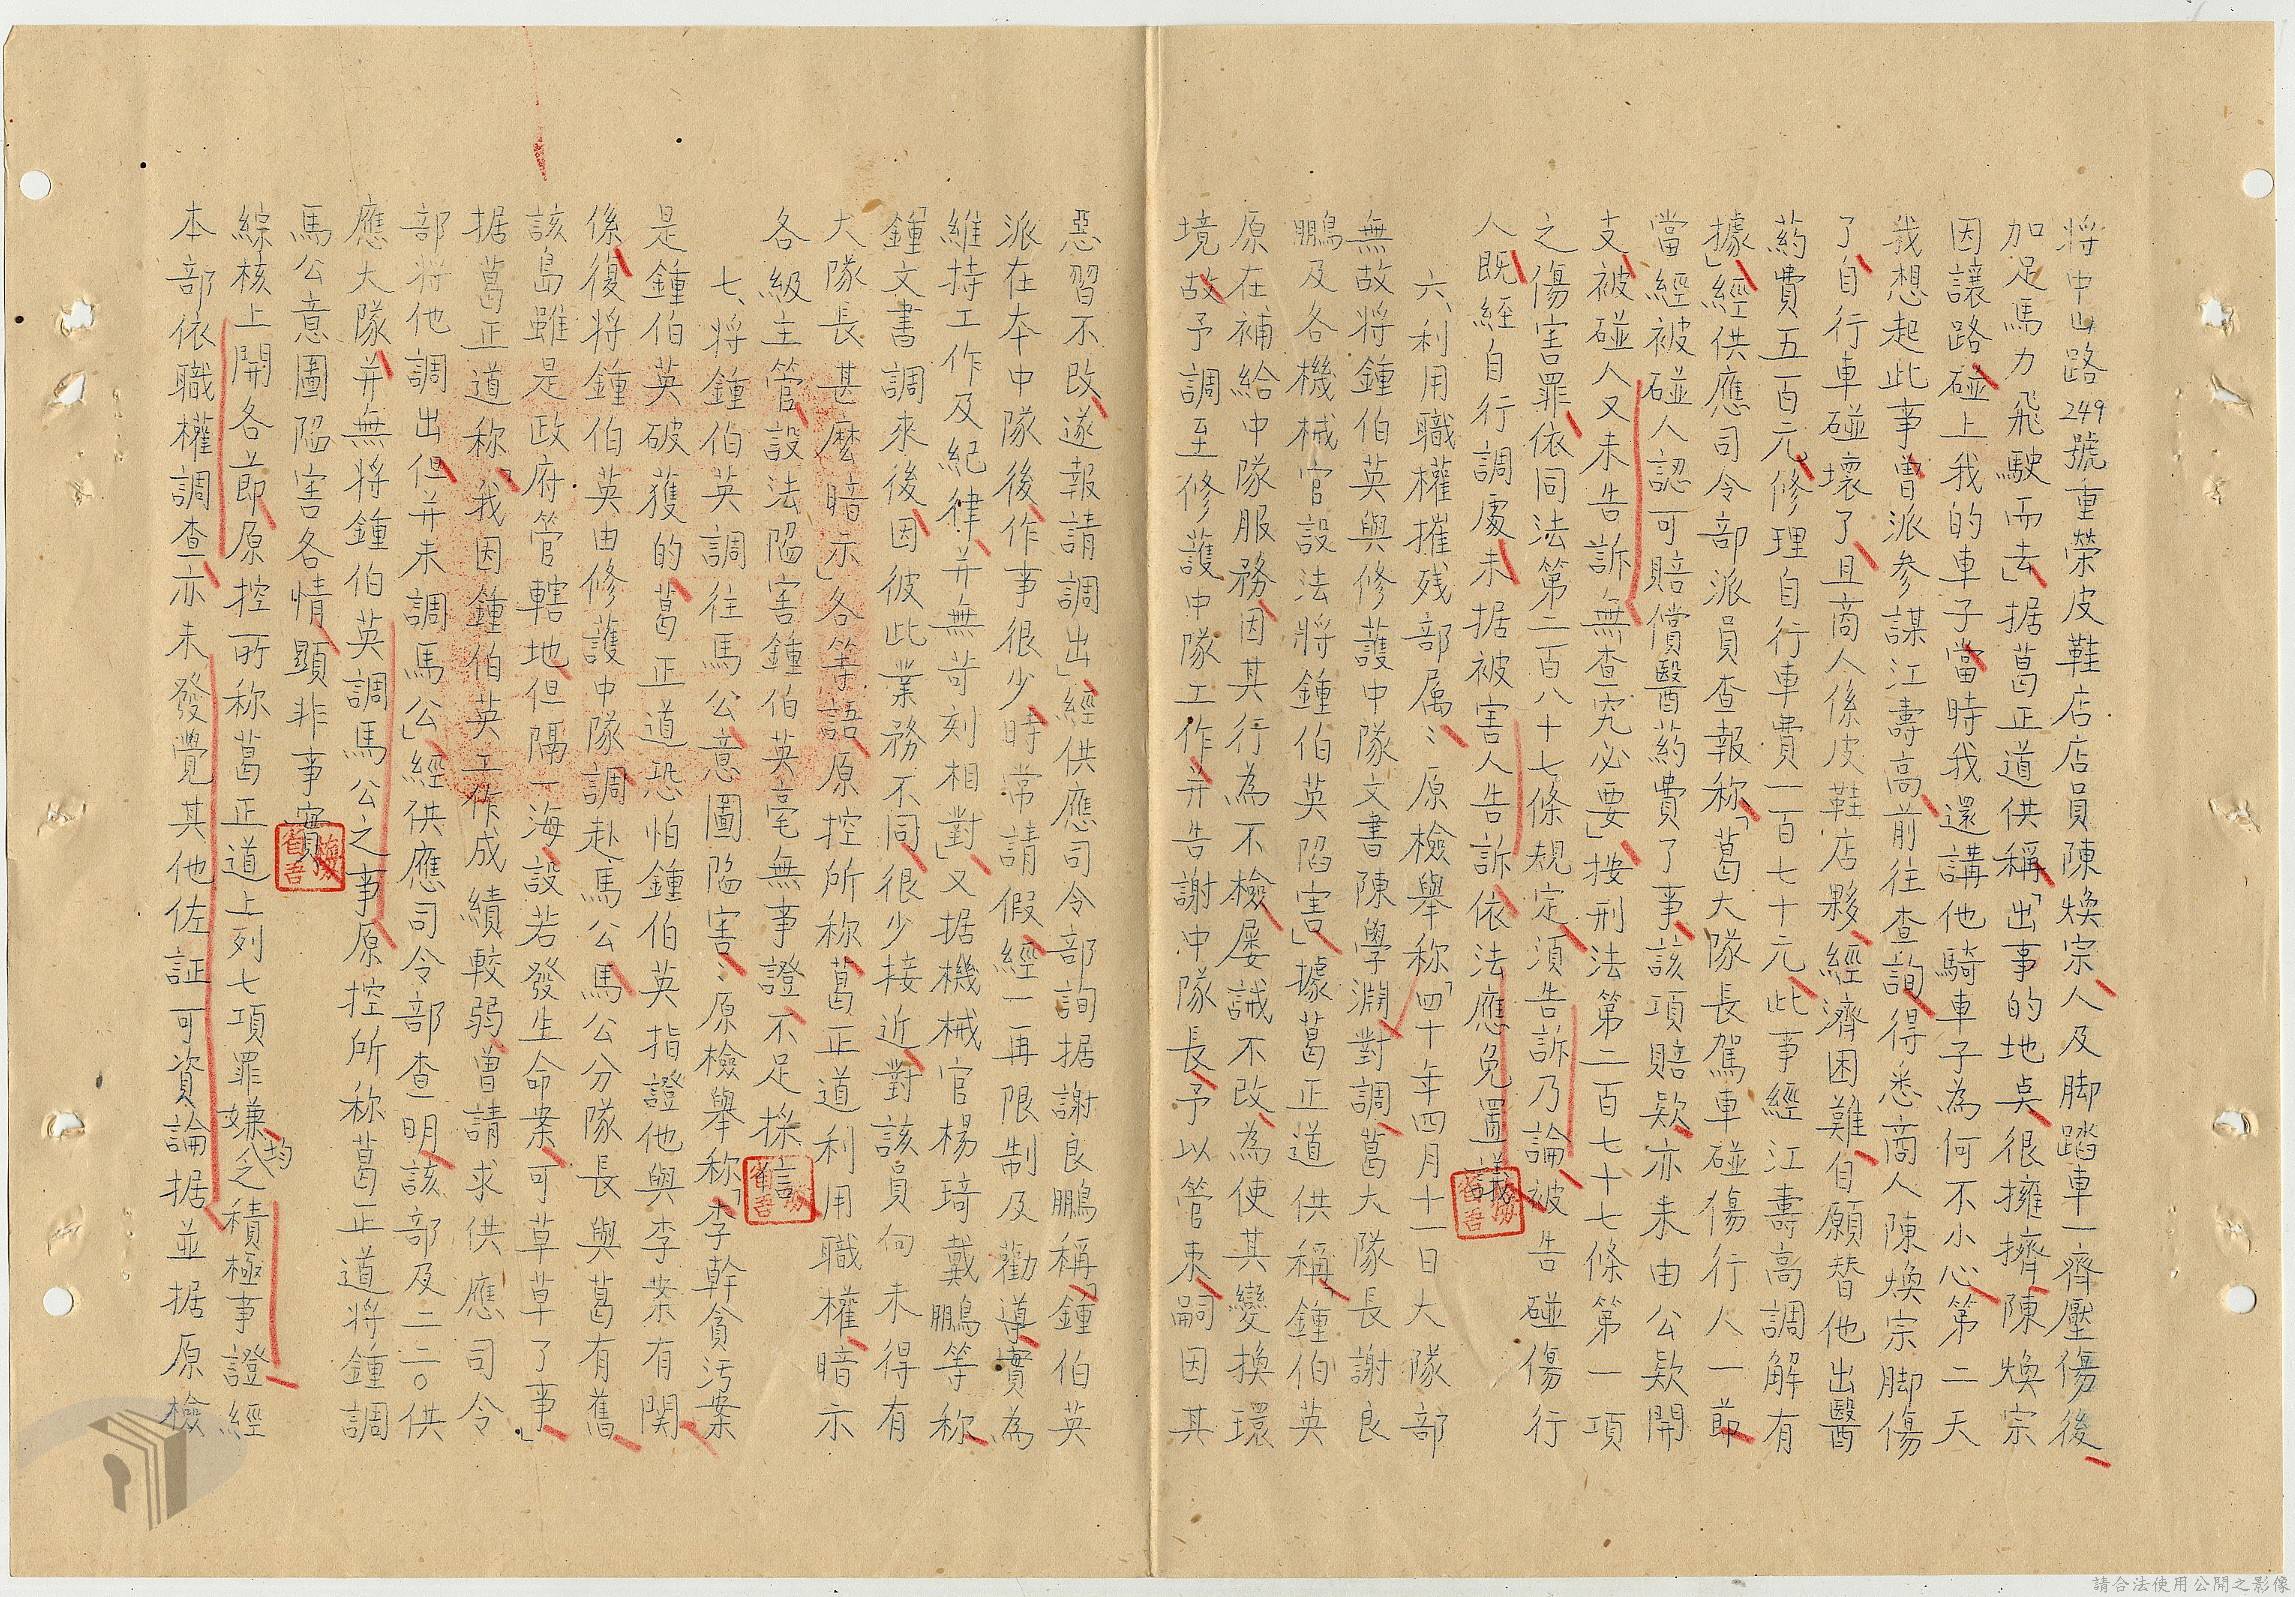 將中山路249號重榮皮鞋店店員陳煥宗人及脚踏車一齊壓傷後
加足馬力飛駛而去」据葛正道供稱「出事的地点很擁擠陳煥宗
因讓路碰上我的車子當時我還講他騎車子為何不小心第二天
我想起此事曾派參謀江壽高前往查詢得悉商人陳煥宗脚傷
了自行車碰壞了且商人係皮鞋店夥經濟困難自願替他出醫
葯費五百元修理自行車費一百七十元此事經江壽高調解有
據」經供應司令部派員查報称「葛大隊長駕車碰傷行人一節
當經被碰人認可賠償醫葯費了事該項賠欵亦未由公欵開
支被碰人又未告訴無查究必要」按刑法第二百七十七條第一項
之傷害罪依同法第二百八十七條規定須告訴乃論被告碰傷行
人既經自行調處未据被害人告訴依法應免置議
六、利用職權摧残部属：原檢舉称「四十年四月十一日大隊部
無故將鍾伯英與修護中隊文書陳學淵對調葛大隊長謝良
鵬及各機械官設法將鍾伯英陷害」據葛正道供稱「鍾伯英
原在補給中隊服務因其行為不檢屡誡不改為使其變換環
境故予調至修護中隊工作并告謝中隊長予以管束嗣因其
惡習不改遂報請調出」經供應司令部詢据謝良鵬稱「鍾伯英
派在本中隊後作事很少時常請假經一再限制及勸導實為
維持工作及紀律并無苛刻相對」又据機械官楊琦戴鵬等称
「鍾文書調來後因彼此業務不同很少接近對該員向未得有
大隊長甚麽暗示」各等語原控所称葛正道利用職權暗示
各級主管設法陷害鍾伯英毫無事證不足採信
七、將鍾伯英調往馬公意圖陷害：原檢舉称「李幹貪污案
是鍾伯英破獲的葛正道恐怕鍾伯英指證他與李案有関
係復將鍾伯英由修護中隊調赴馬公馬公分隊長與葛有舊
該島雖是政府管轄地但隔一海設若發生命案可草草了事」
据葛正道称「我因鍾伯英工作成績較弱曾請求供應司令
部將他調出但并未調馬公」經供應司令部查明該部及二二〇供
應大隊并無將鍾伯英調馬公之事原控所称葛正道將鍾調
馬公意圖陷害各情顯非事實
綜核上開各節原控所称葛正道上列七項罪嫌均乏積極事證經
本部依職權調查亦未發覺其他佐証可資論据並据原檢
請合法使用公開之影像